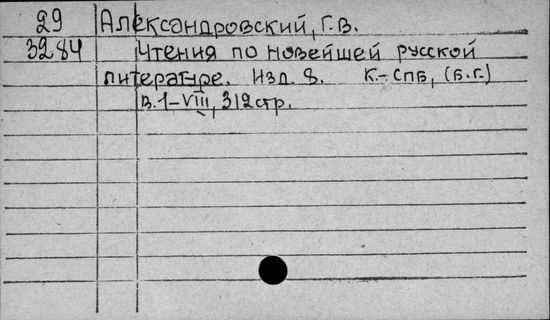 29 Александровский, Г.В.
3284 Чтения по новейшей русской
литературе. Изд. 8. К.-СПБ, (б.г.)
В.1-VIII, 312 стр.